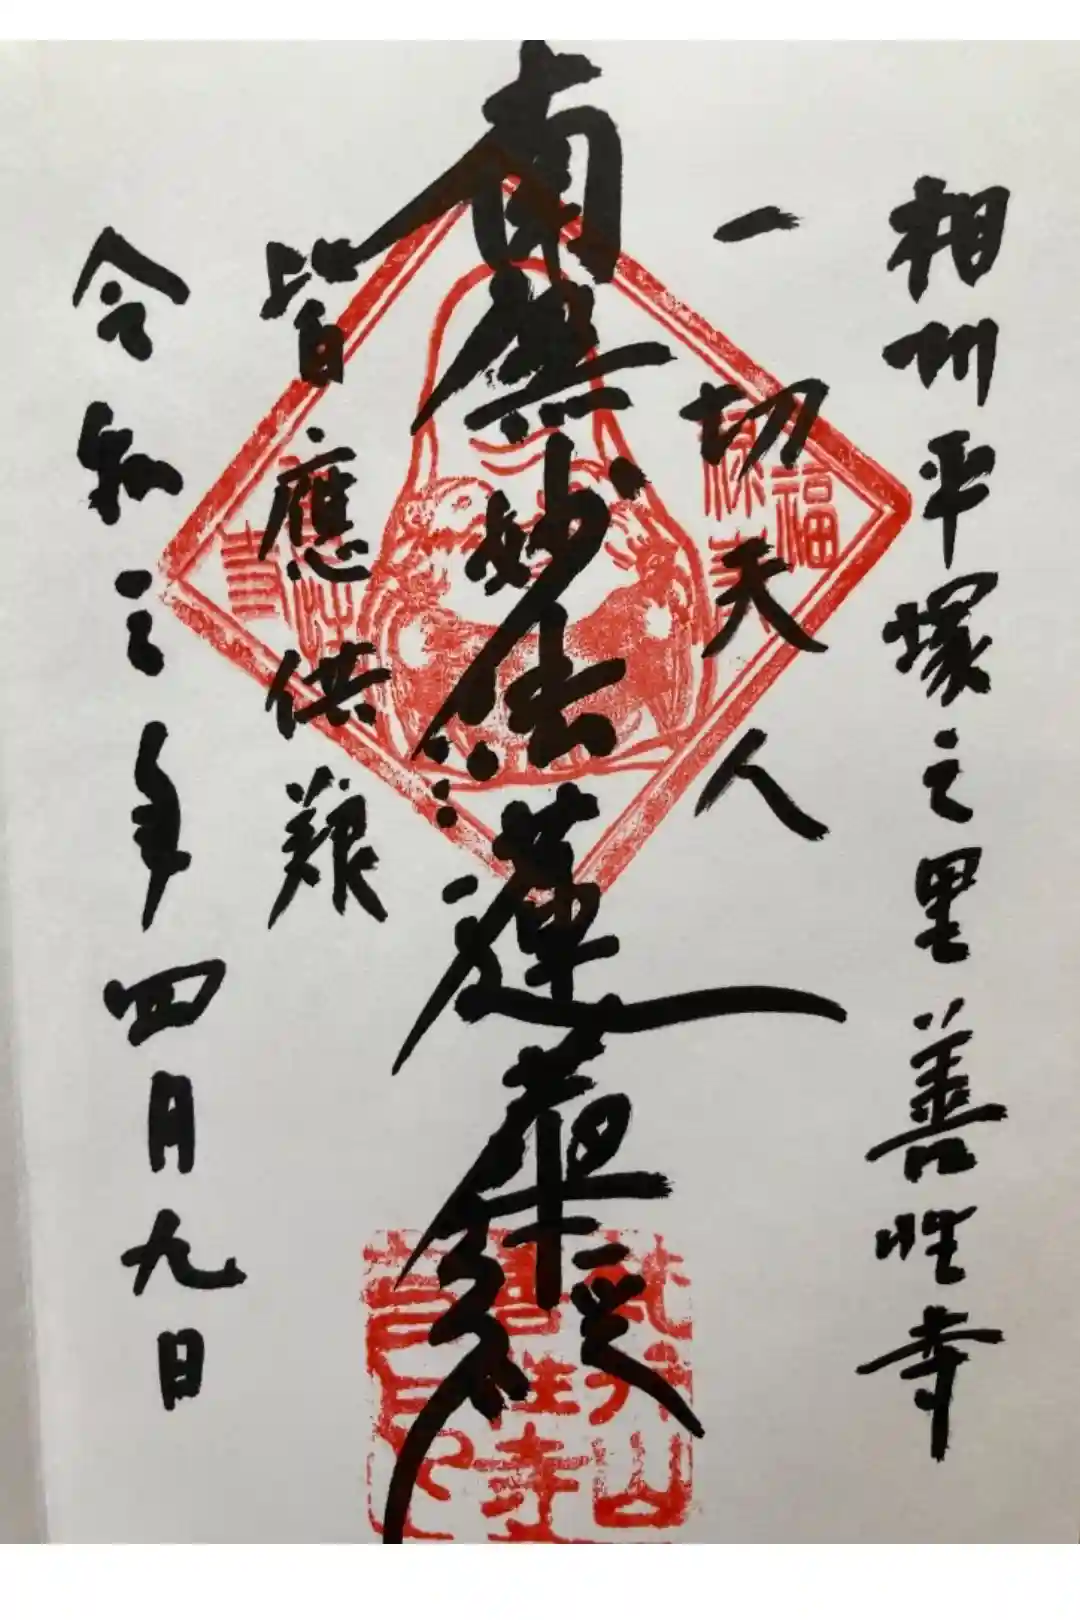 相州平塚之里善性寺
一切天人
南無妙法蓮華経
皆應供養
令和三年四月九日
福
禄
善性寺